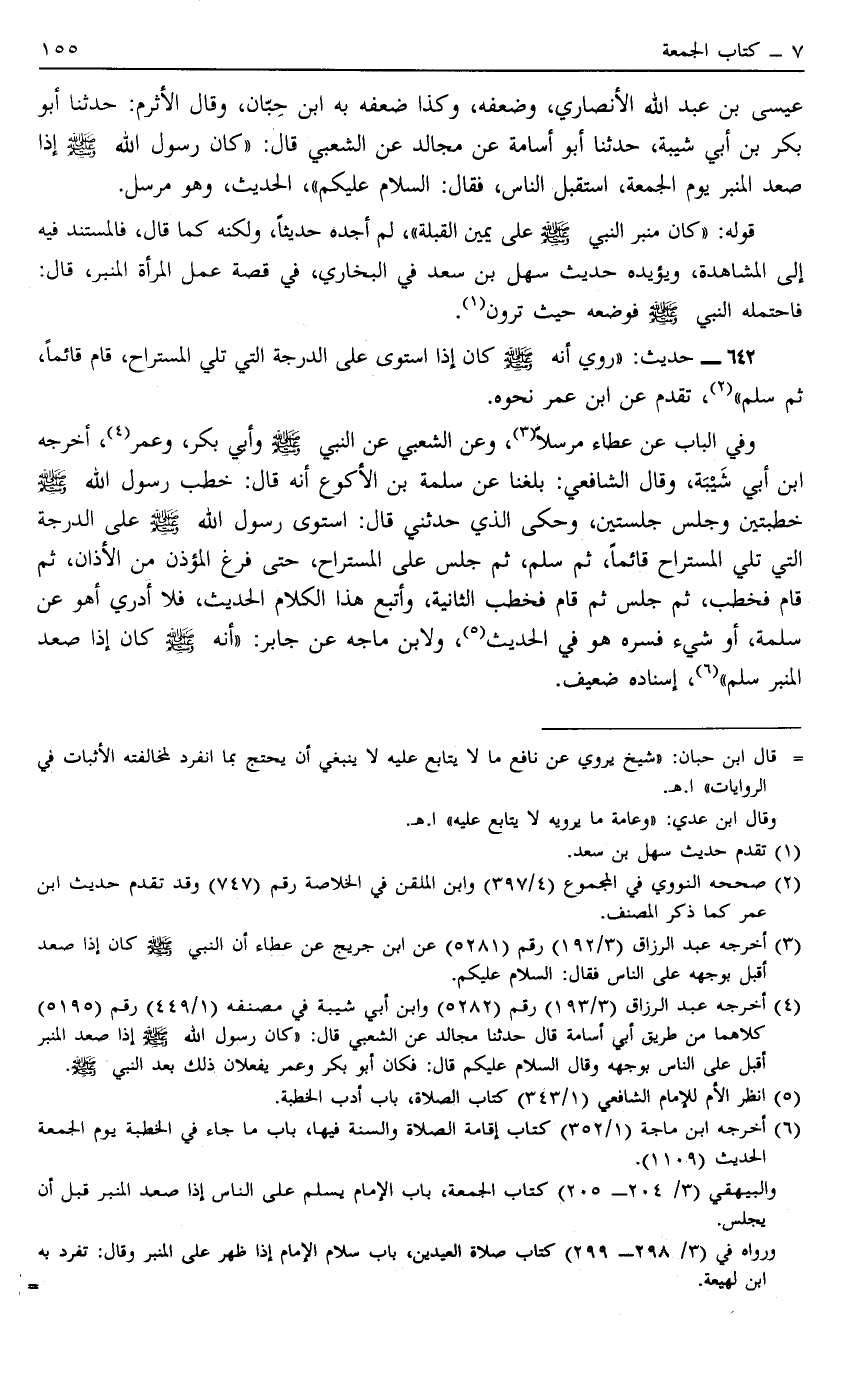 ٧ ـ كتاب الجمعة ١٥٥
عيسى بن عبد الله الأنصاري، وضعفه، وكذا ضعفه به ابن حِبّان، وقال الأثرم: حدثنا أبو
بكر بن أبي شيبة، حدثنا أبو أسامة عن مجالد عن الشعبي قال: «كان رسول الله ﷺ إذا
صعد المنبر يوم الجمعة، استقبل الناس، فقال: السلام عليكم»، الحديث، وهو مرسل.
قوله: «كان منبر النبي ﷺ على يمين القبلة»، لم أجده حديثاً، ولكنه كما قال، فالمستند فيه
إلى المشاهدة، ويؤيده حديث سهل بن سعد في البخاري، في قصة عمل المرأة المنبر، قال:
فاحتمله النبي ﷺ فوضعه حيث ترون(١).
٦٤٢ ـ حديث: «روي أنه ﷺ كان إذا استوى على الدرجة التي تلي المستراح، قام قائماً،
ثم سلم»(٢)، تقدم عن ابن عمر نحوه.
وفي الباب عن عطاء مرسلاً(٣)، وعن الشعبي عن النبي ﷺ وأبي بكر، وعمر(٤)، أخرجه
ابن أبي شَيْبَة، وقال الشافعي: بلغنا عن سلمة بن الأكوع أنه قال: خطب رسول الله ﷺ
خطبتين وجلس جلستين، وحكى الذي حدثني قال: استوى رسول الله ﷺ على الدرجة
التي تلي المستراح قائماً، ثم سلم، ثم جلس على المستراح، حتى فرغ المؤذن من الأذان، ثم
قام فخطب، ثم جلس ثم قام فخطب الثانية، وأتبع هذا الكلام الحديث، فلا أدري أهو عن
سلمة، أو شيء فسره هو في الحديث(٥)، ولابن ماجه عن جابر: «أنه ﷺ كان إذا صعد
المنبر سلم»(٦)، إسناده ضعيف.
= قال ابن حبان: «شيخ يروي عن نافع ما لا يتابع عليه لا ينبغي أن يحتج بما انفرد لمخالفته الأثبات في
الروايات» ا.هـ.
وقال ابن عدي: «وعامة ما يرويه لا يتابع عليه» ا.هـ.
(١) تقدم حديث سهل بن سعد.
(٢) صححه النووي في المجموع (٣٩٧/٤) وابن الملقن في الخلاصة رقم (٧٤٧) وقد تقدم حديث ابن
عمر كما ذكر المصنف.
(٣) أخرجه عبد الرزاق (١٩٢/٣) رقم (٥٢٨١) عن ابن جريج عن عطاء أن النبي ﷺ كان إذا صعد
أقبل بوجهه على الناس فقال: السلام عليكم.
(٤) أخرجه عبد الرزاق (١٩٣/٣) رقم (٥٢٨٢) وابن أبي شيبة في مصنفه (٤٤٩/١) رقم (٥١٩٥)
كلاهما من طريق أبي أسامة قال حدثنا مجالد عن الشعبي قال: «كان رسول الله ﷺ إذا صعد المنبر
أقبل على الناس بوجهه وقال السلام عليكم قال: فكان أبو بكر وعمر يفعلان ذلك بعد النبي ﷺ.
(٥) انظر الأم للإمام الشافعي (٣٤٣/١) كتاب الصلاة، باب أدب الخطبة.
(٦) أخرجه ابن ماجة (٣٥٢/١) كتاب إقامة الصلاة والسنة فيها، باب ما جاء في الخطبة يوم الجمعة
الحديث (١١٠٩).
والبيهقي (٣/ ٢٠٤ـ ٢٠٥) كتاب الجمعة، باب الإمام يسلم على الناس إذا صعد المنبر قبل أن
يجلس.
ورواه في (٣/ ٢٩٨ـ ٢٩٩) كتاب صلاة العيدين، باب سلام الإمام إذا ظهر على المنبر وقال: تفرد به
ابن لهيعة. =